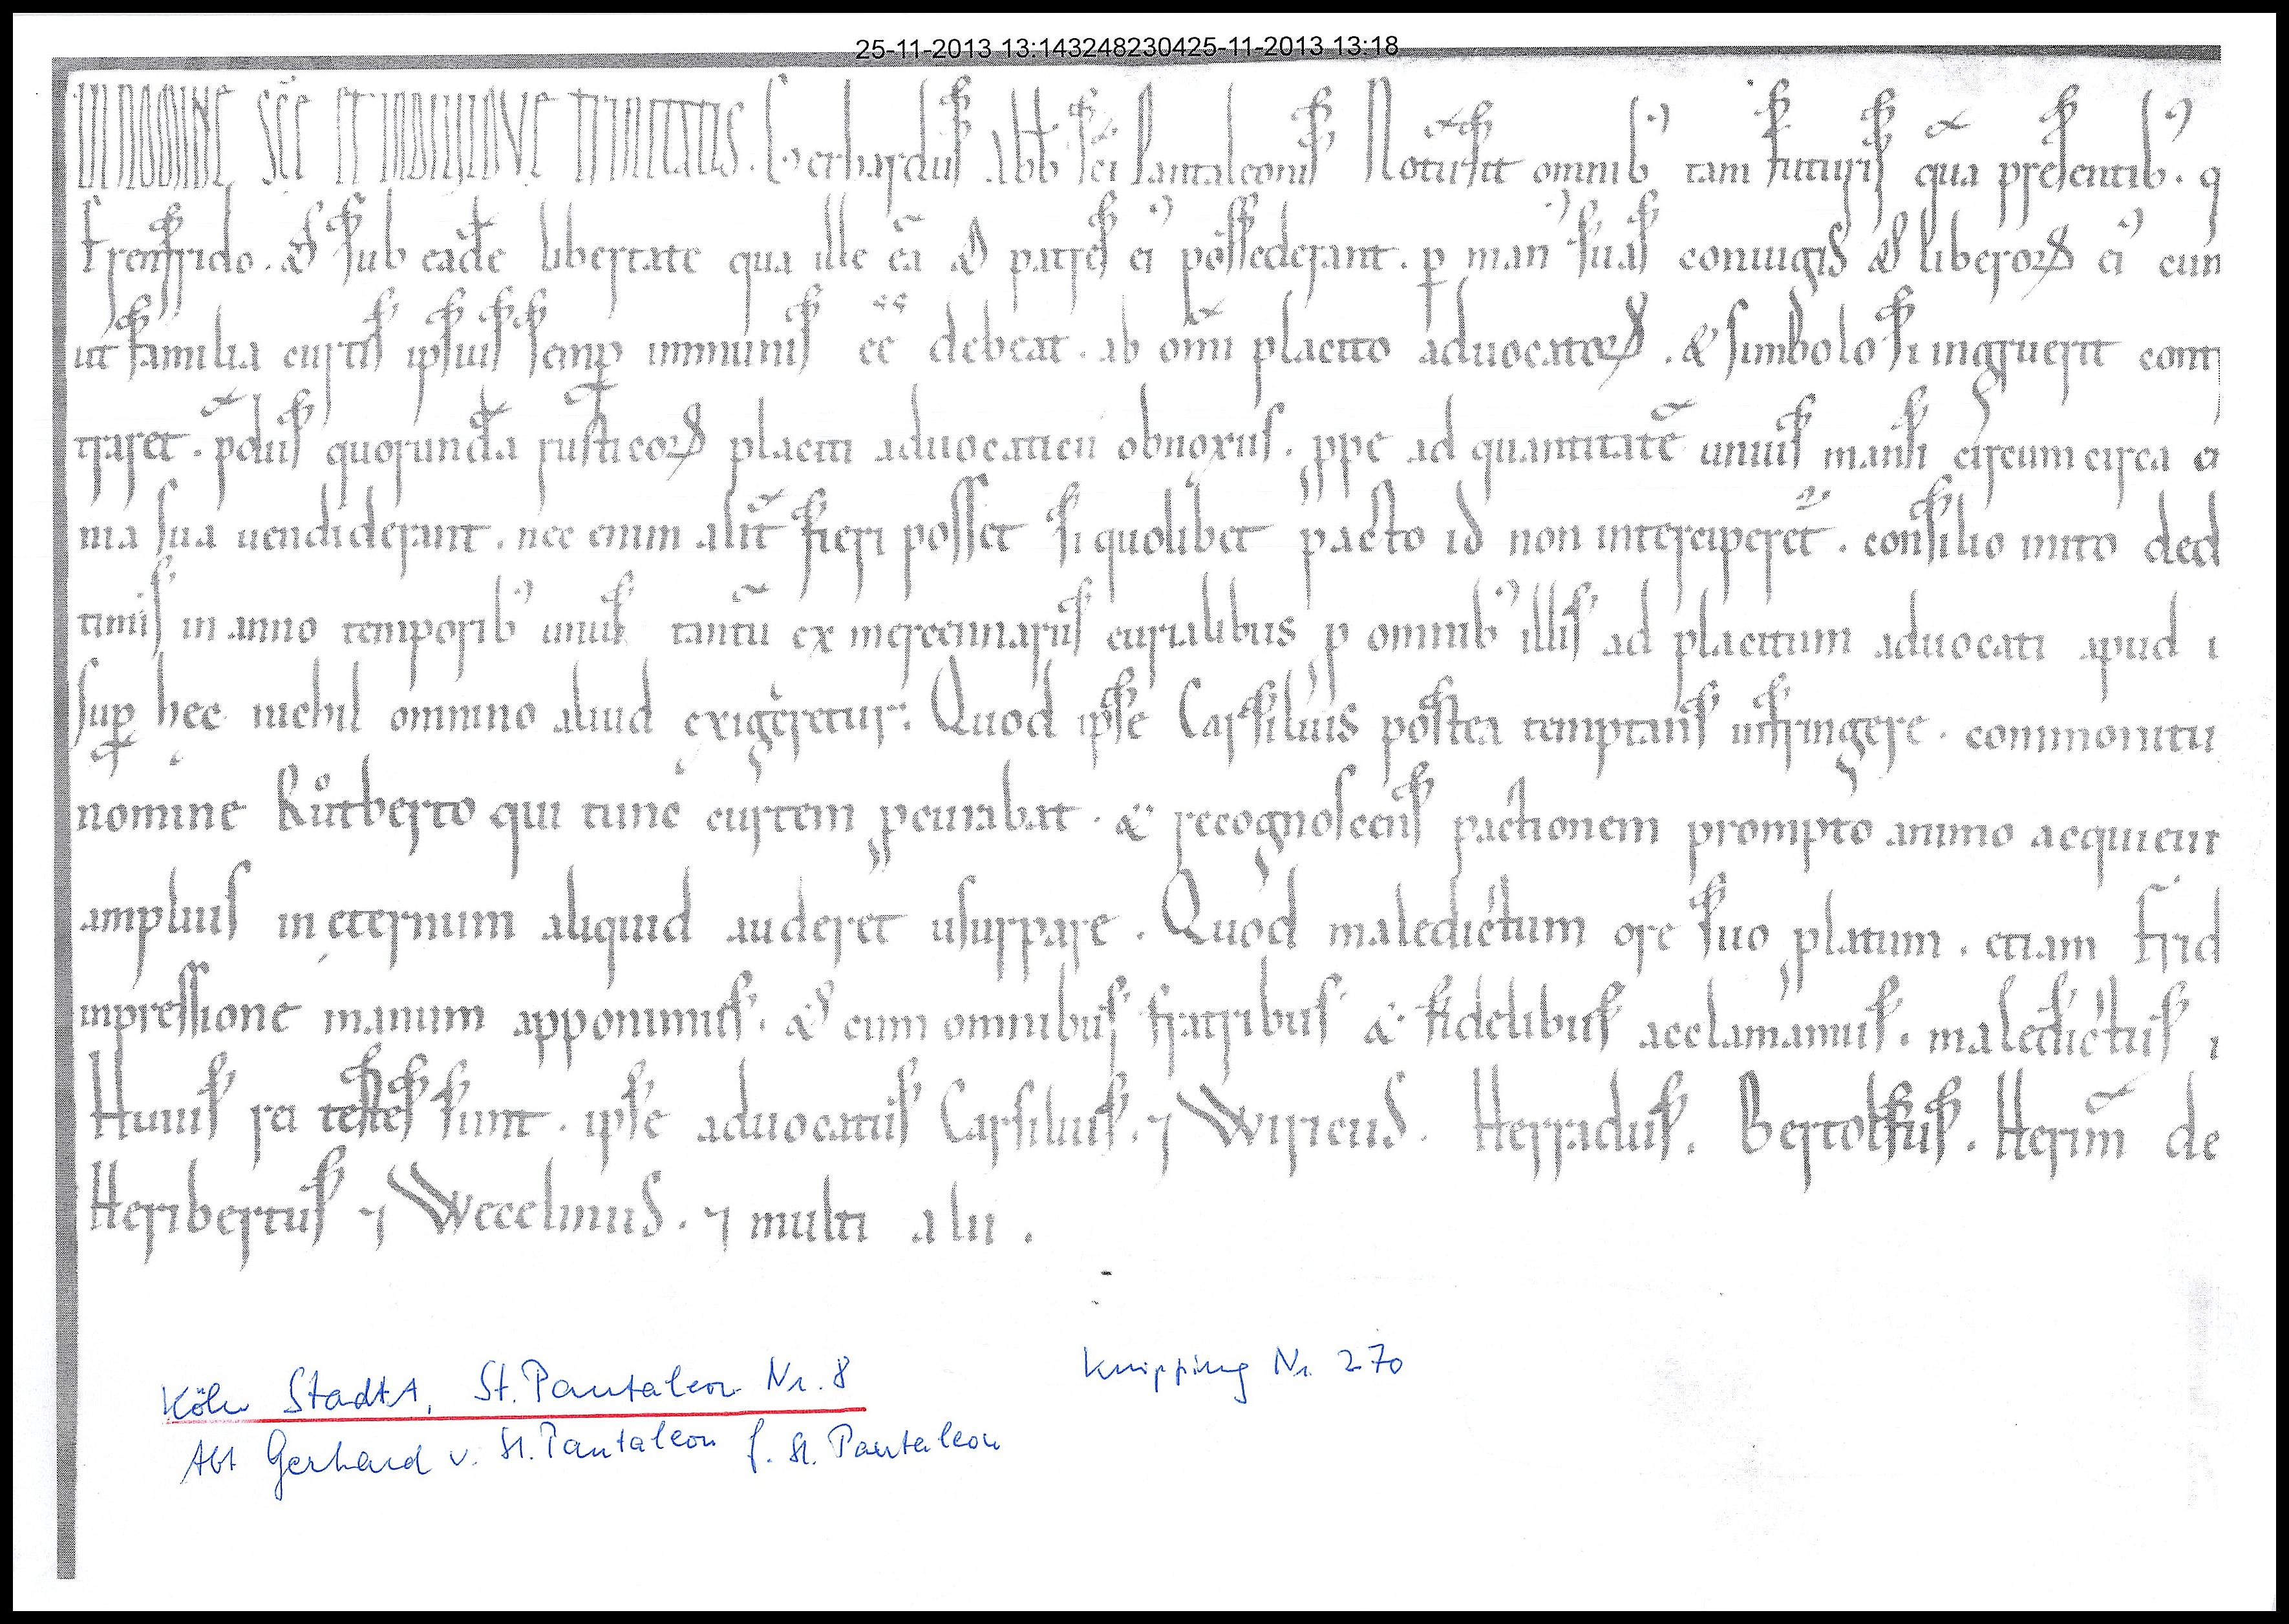 25-11-2013 13:143248230425-11-2013 13:18
IN NOMINE SC̄E ET INDIVIDVE TRINITATIS. Gerhardus Abb sc̄i Pantaleonis Notū sit omnib' tam futuris quā presentib'. q
frenfrido. & sub eadē libertate qua ille eā & patres ei' possederant. p man' suas coniugis & liberoꝝ ei' cum
ut familia curtis ipsius semp̱ immunis eē debeat. ab om̄i placito aduocatoꝝ. & simbolo si ingruerit cont
traret. pdius quorundā rusticoꝝ placiti aduocatici obnoxius. ꝓpe ad quantitatē unius mansi circumcirca
ma sua uendiderant. nec enim alit̄ fieri posset si quolibet pacto id non interciperet̄. consilio inito ded
timis in anno temporib' unus tantū ex mercennariis curialibus ꝓ omnib' illis ad placitum aduocati apud i
sup̱ hec nichil omnino aliud exigeretur: Quod ipse Carsilius postea temptans infringere. commonitu
nomine Růtberto qui tunc curtem ꝓcurabat. & recognoscens pactionem prompto animo acquieu
amplius in ęternum aliquid auderet usurpare. Quod maledictum ore suo ꝓlatum. etiam frid
inpressione manum apponimus. & cum omnibus fratribus & fidelibus acclamamus. maledictus i
Huius rei testes sunt. ipse aduocatus Carsilius. ⁊ Wiricus. Herradus. Bertolfus. Herim̄ de
Heribertus ⁊ Wecelinus. ⁊ multi alii.
Köln StadtA, St. Pantaleon Nr. 8
Knipping Nr. 270
Abt Gerhard v. St. Pantaleon f. St. Pantaleon